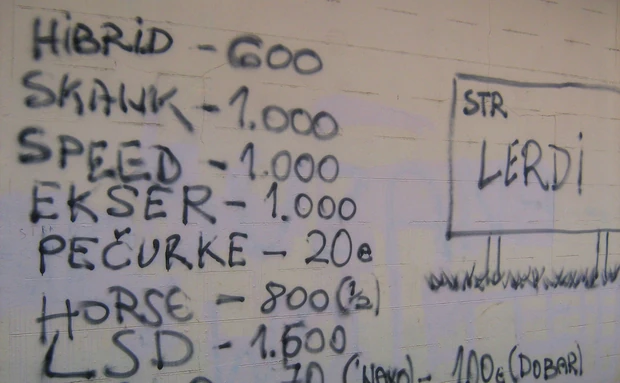 HiBRiD - 600
SKANK - 1.000
SPEED - 1.000
EKSER - 1.000
PEČURKE - 20e
HORSE - 800 (½)
LSD - 1.600
70 - 100e (DOBAR)
STR
LERDi